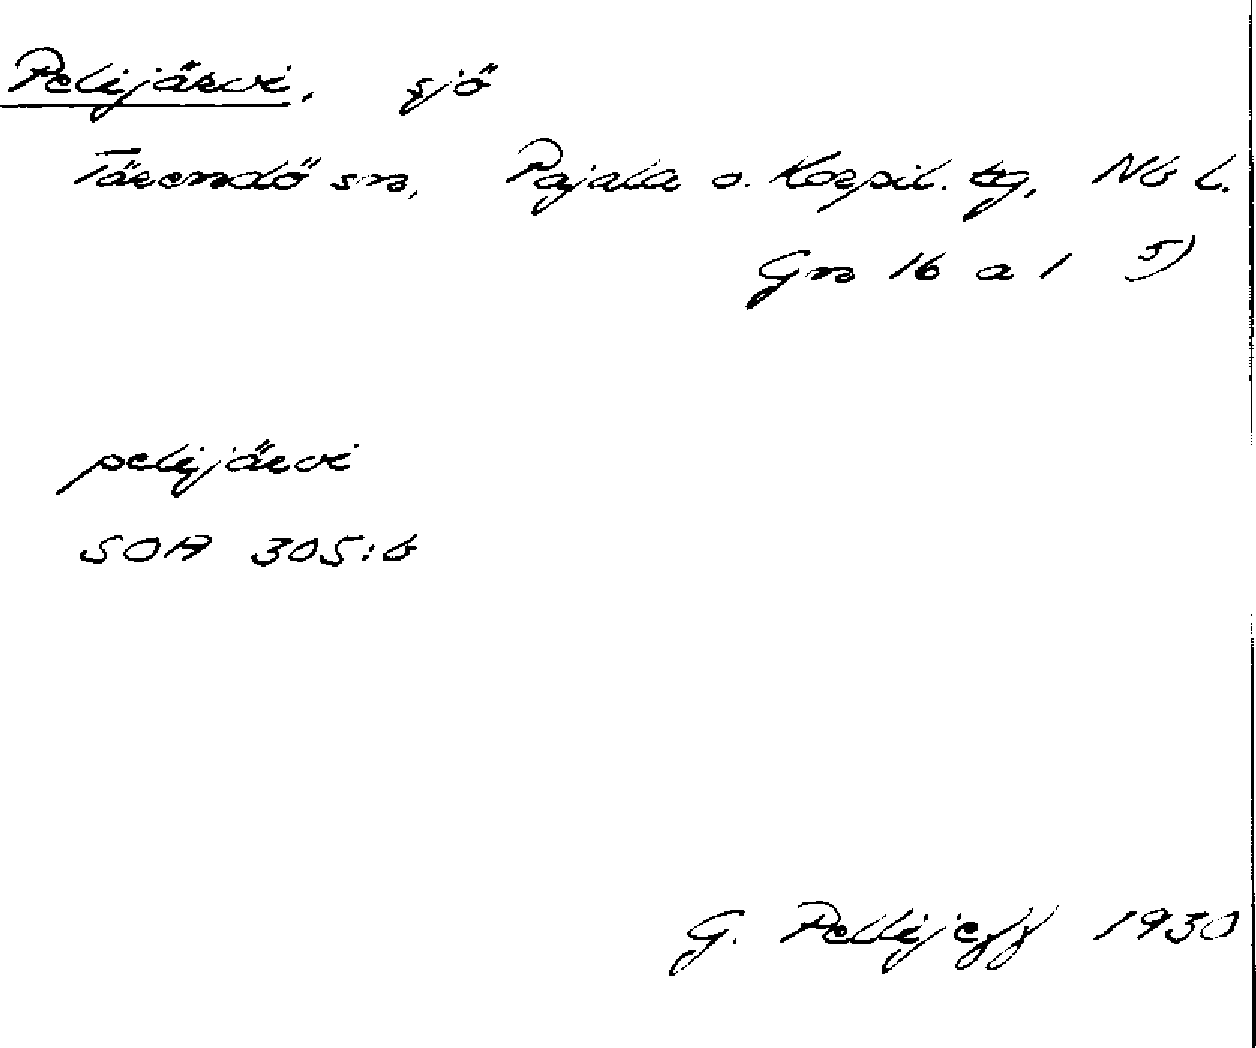 Pelijärvi, sjö
Tärendö sn, Pajala o. Korpil. tg, Nb l.
Gn 16 a 1 5)
pelijärvi
SOA 305:6
G. Pellijeff 1930